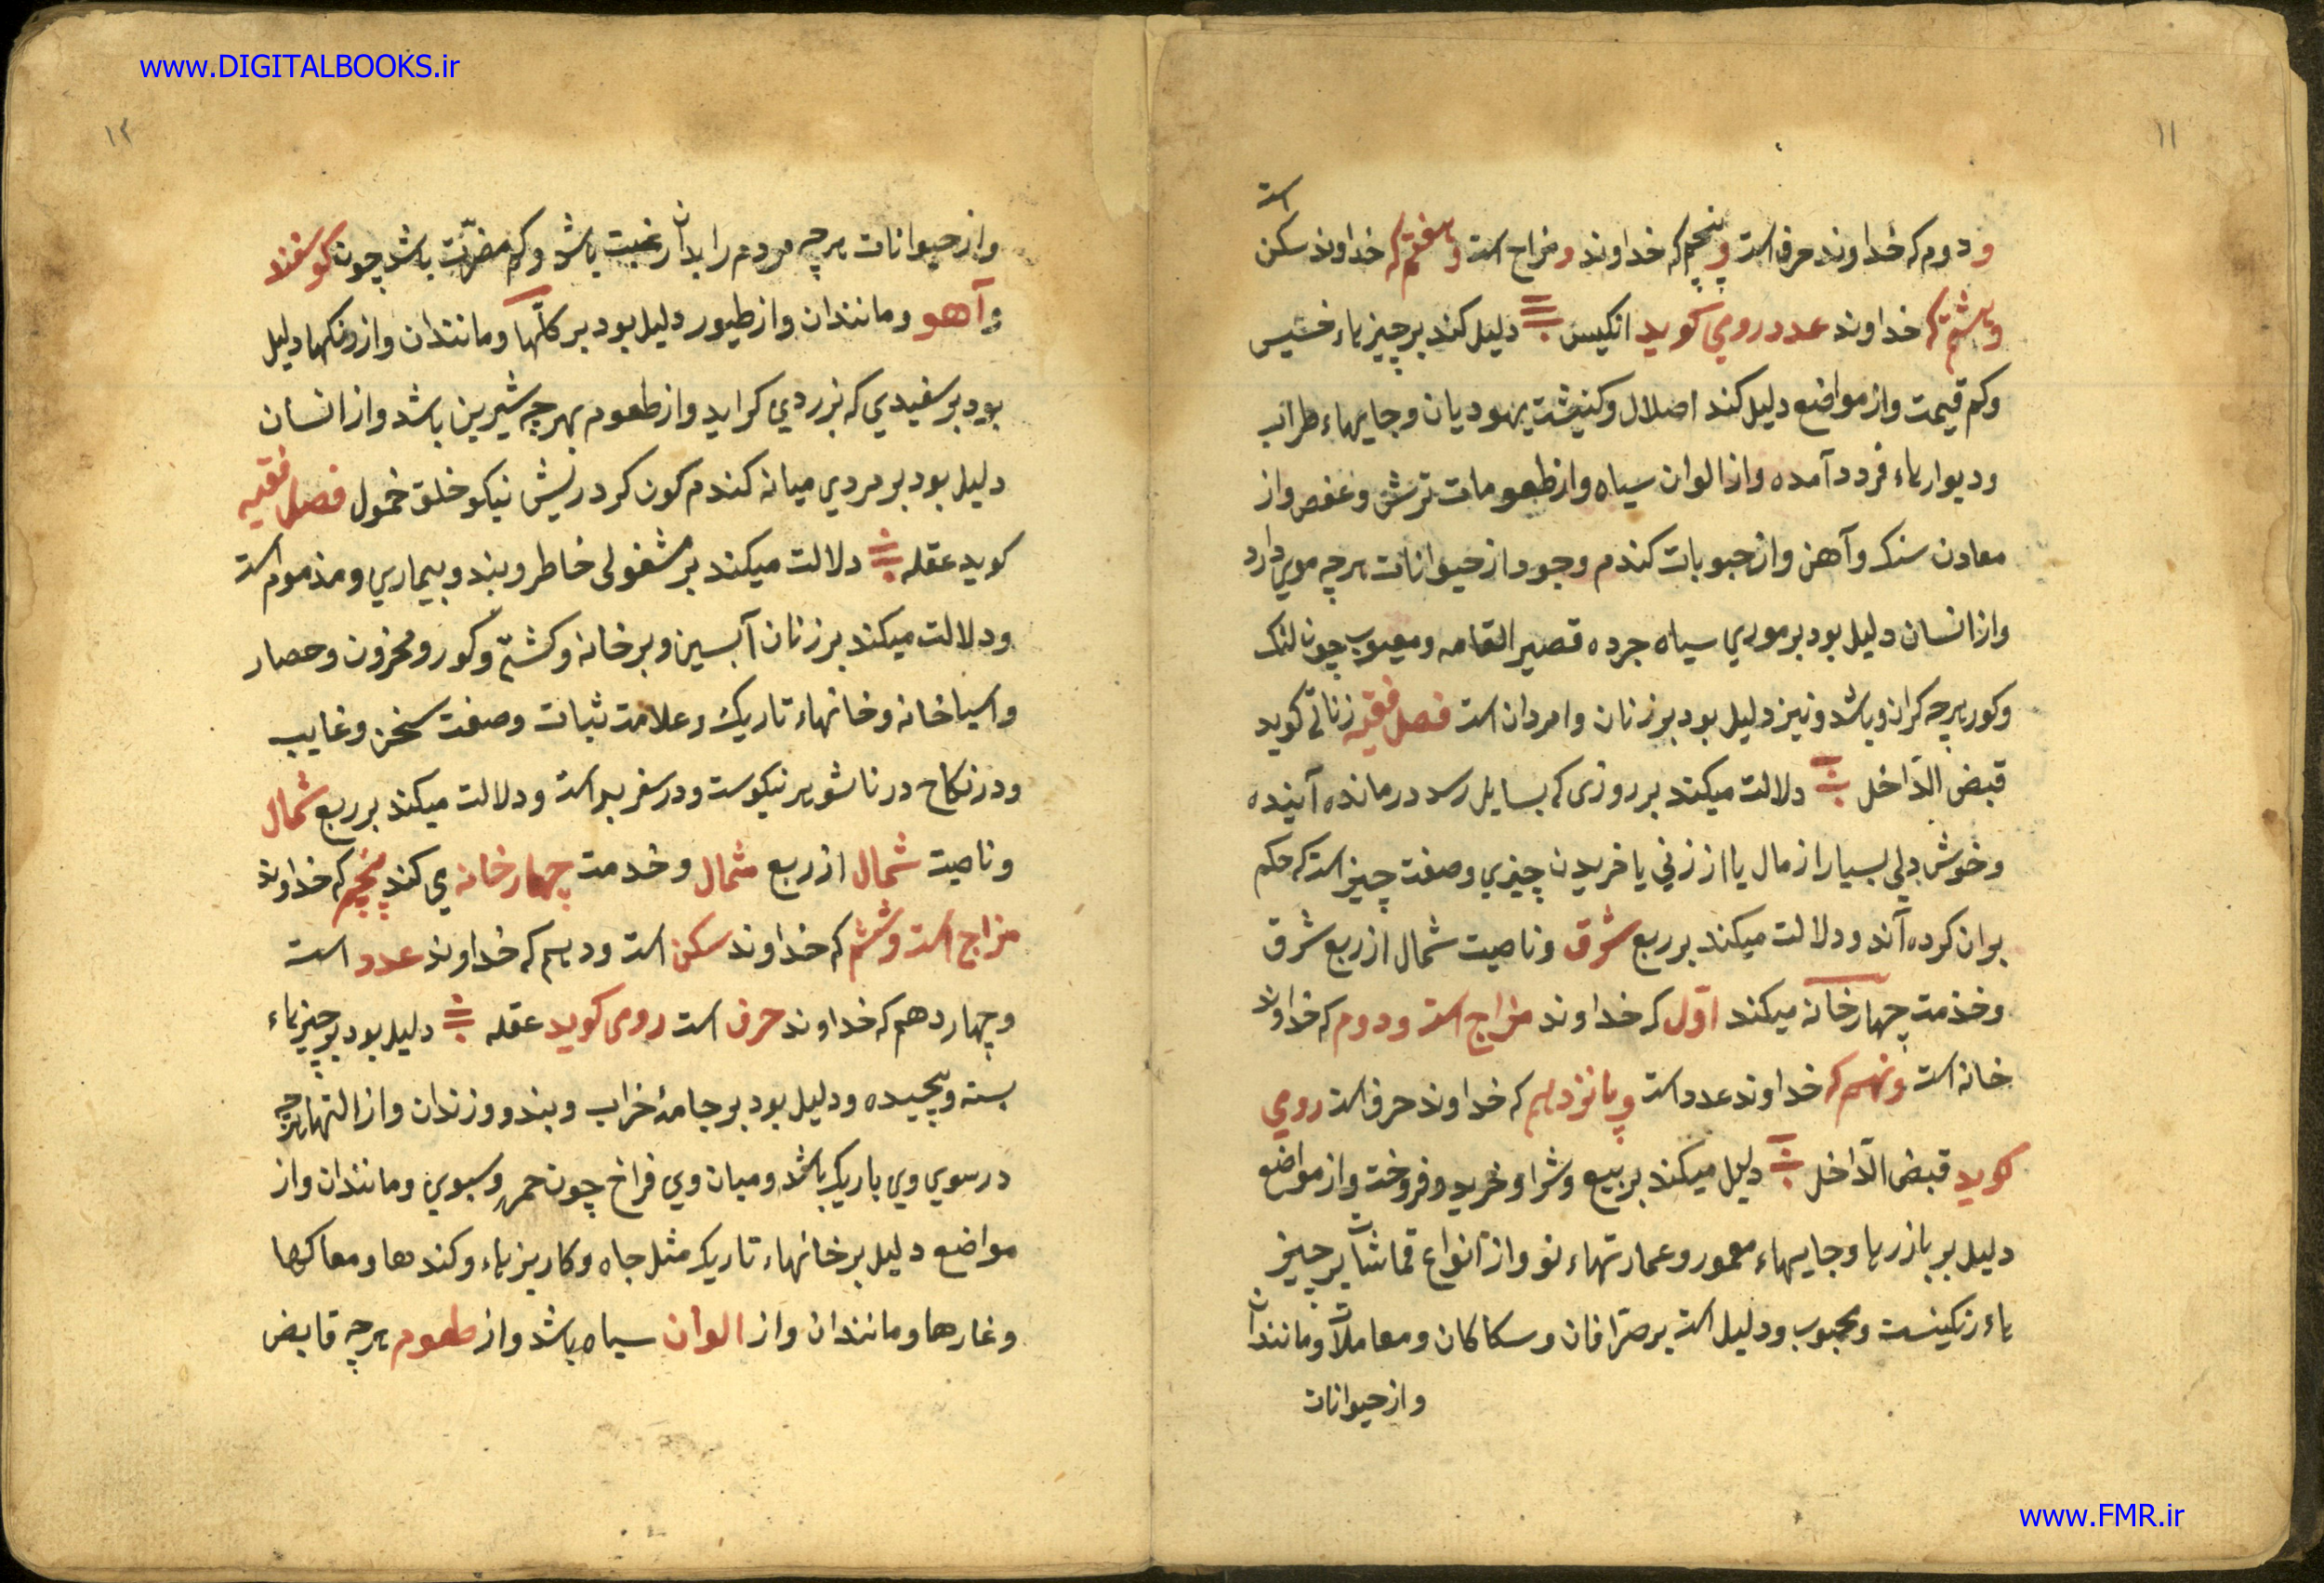 www.DIGITALBOOKS.ir
۱۱
است
و دوم که خداوند حرف است و پنجم که خداوند و مزاج است و هفتم که خداوند سکن
و هشتم که خداوند عدد رومي کوید انکیس دلیل کند بر چیزهاء خسیس
وکم قیمت واز مواضع دلیل کند اصلال وکنیشت یهودیان وجایهاء طراب
ودیوارهاء فرود آمده واز الوان سیاه واز طعومات ترش وعفص واز
معادن سنک وآهن واز حبوبات کندم وجو واز حیوانات هرچه موي دارد
واز انسان دلیل بود بر موري سیاه جرده قصیر القامه ومعیوب چون لنک
وکور هرچه کران وباشد ونیز دلیل بود بر زنان وامردان است فصل فقیه زناتی کوید
قبض الدّاخل دلالت میکند بر روزی که بسایل رسد درمانده آینده
وخوش دلي بسیار از مال یا از زني یا خریدن چیزي وصفت چیز است که حکم
بران کرده آند ودلالت میکند بر ربع شرق وناصیت شمال از ربع شرق
وخذمت چهار خانه میکند اوّل که خداوند مزاج است ودوم که خداوند
خانه است ونهم که خداوند عدد است وپانزدهم که خداوند حرف است رومي
کوید قبض الدّاخل دلیل میکند بر بیع وشرا وخرید وفروخت واز مواضع
دلیل بر بازرها وجایهاء معمور وعمارتهاء نو واز انواع قماشات بر چیز
هاء رنکینست ومحبوب ودلیل است بر صرّافان وسکاکان ومعاملات ومانندان
واز حیوانات
۱۲
واز حیوانات هرچه مردم را بدان رغبت باشد وکم مضرّت باشد چون کوسفند
وآهو ومانندان واز طیور دلیل بود بر کلنها ومانندان واز رنکها دلیل
بود بر سفیدي که بزردي کراید واز طعوم بهرچه شیرین باشد واز انسان
دلیل بود بر مردي میانه کندم کون کرد ریش نیکو خلق خمول فصل فقیه
کوید عقله دلالت میکند بر مشغولی خاطر وبند وبیماري ومذموم است
ودلالت میکند بر زنان آبسین وبر خانه وکشتی وکور ومخزون وحصار
واسیاخانه وخانهاء تاریک وعلامت ثبات وصفت سخن وغایب
ودر نکاح در ناشویر نیکوست ودر سفر بد است ودلالت میکند بر ربع شمال
وناصیت شمال از ربع شمال وخدمت چهار خانه ي کند پنجم که خداوند
مزاج است وششم که خداوند سکن است ودهم که خداوند عدد است
وچهاردهم که خداوند حرف است رومی کوید عقله دلیل بود بر چیزهاء
بسته وپیچیده ودلیل بود بر جامهٔ خراب وبند وزندان واز التها هرچه
در سوي وي باریک باشد ومیان وي فراخ چون خمره وسبوي ومانندان واز
مواضع دلیل بر خانهاء تاریک مثل چاه وکاریزهاء وکندها ومعاکها
وغارها ومانندان واز الوان سیاه باشد واز طعوم هرچه قابض
www.FMR.ir